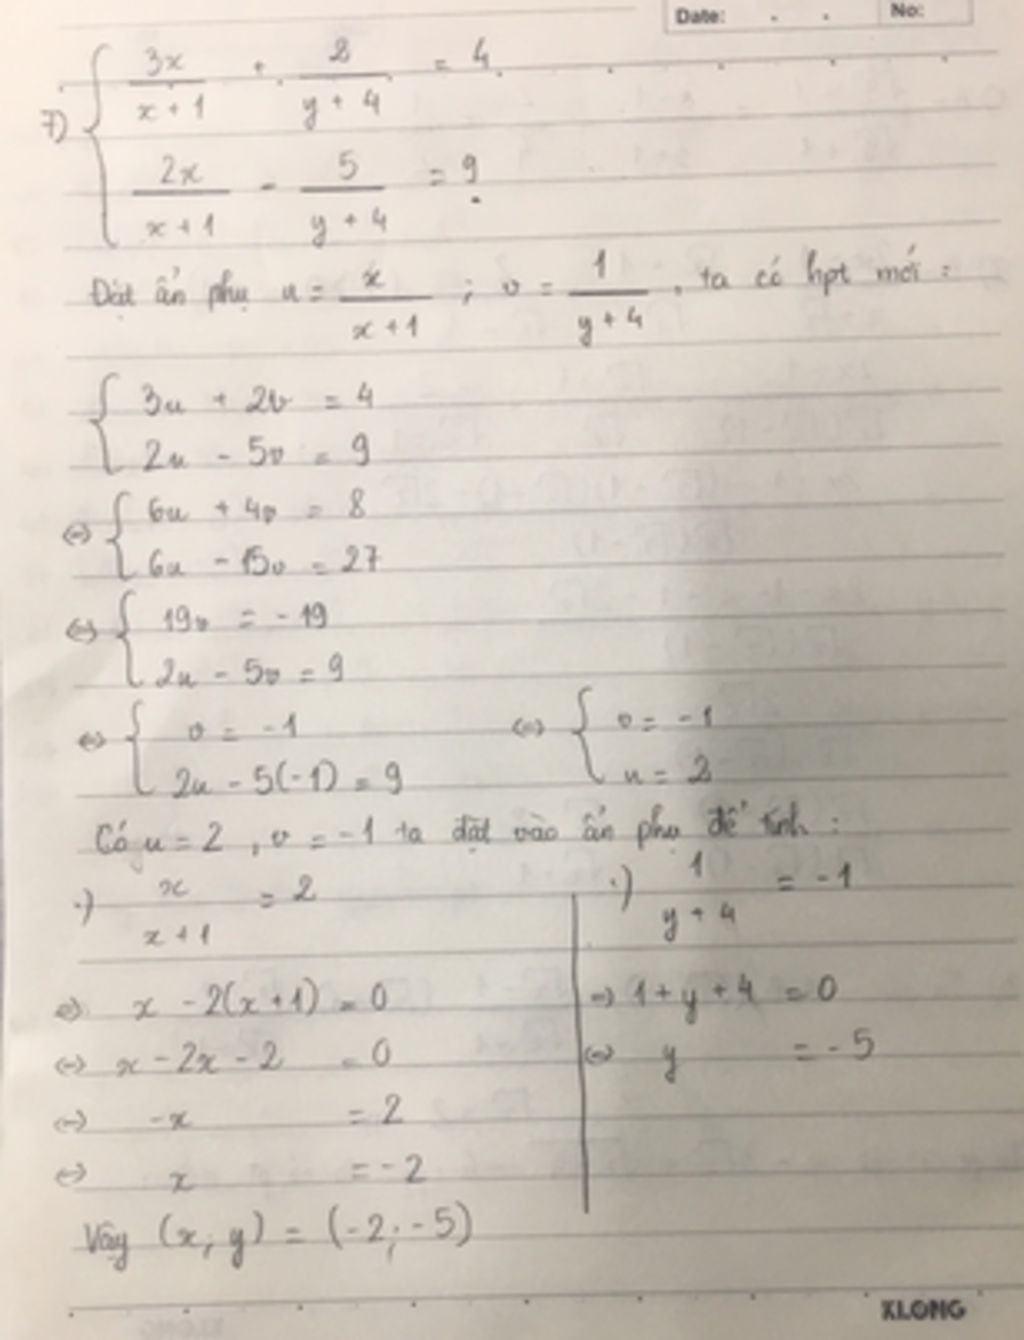 Date: . . No:
7) { 3x/(x+1) + 2/(y+4) = 4
{ 2x/(x+1) - 5/(y+4) = 9
Đặt ẩn phụ u = x/(x+1) ; v = 1/(y+4), ta có hpt mới :
{ 3u + 2v = 4
{ 2u - 5v = 9
⇔ { 6u + 4v = 8
{ 6u - 15v = 27
⇔ { 19v = -19
{ 2u - 5v = 9
⇔ { v = -1 ⇔ { v = -1
{ 2u - 5(-1) = 9 { u = 2
Có u = 2 , v = -1 ta đặt vào ẩn phụ để tính :
.) x/(x+1) = 2
⇒ x - 2(x+1) = 0
⇔ x - 2x - 2 = 0
⇔ -x = 2
⇔ x = -2
.) 1/(y+4) = -1
⇒ 1 + y + 4 = 0
⇔ y = -5
Vậy (x; y) = (-2; -5)
KLONG